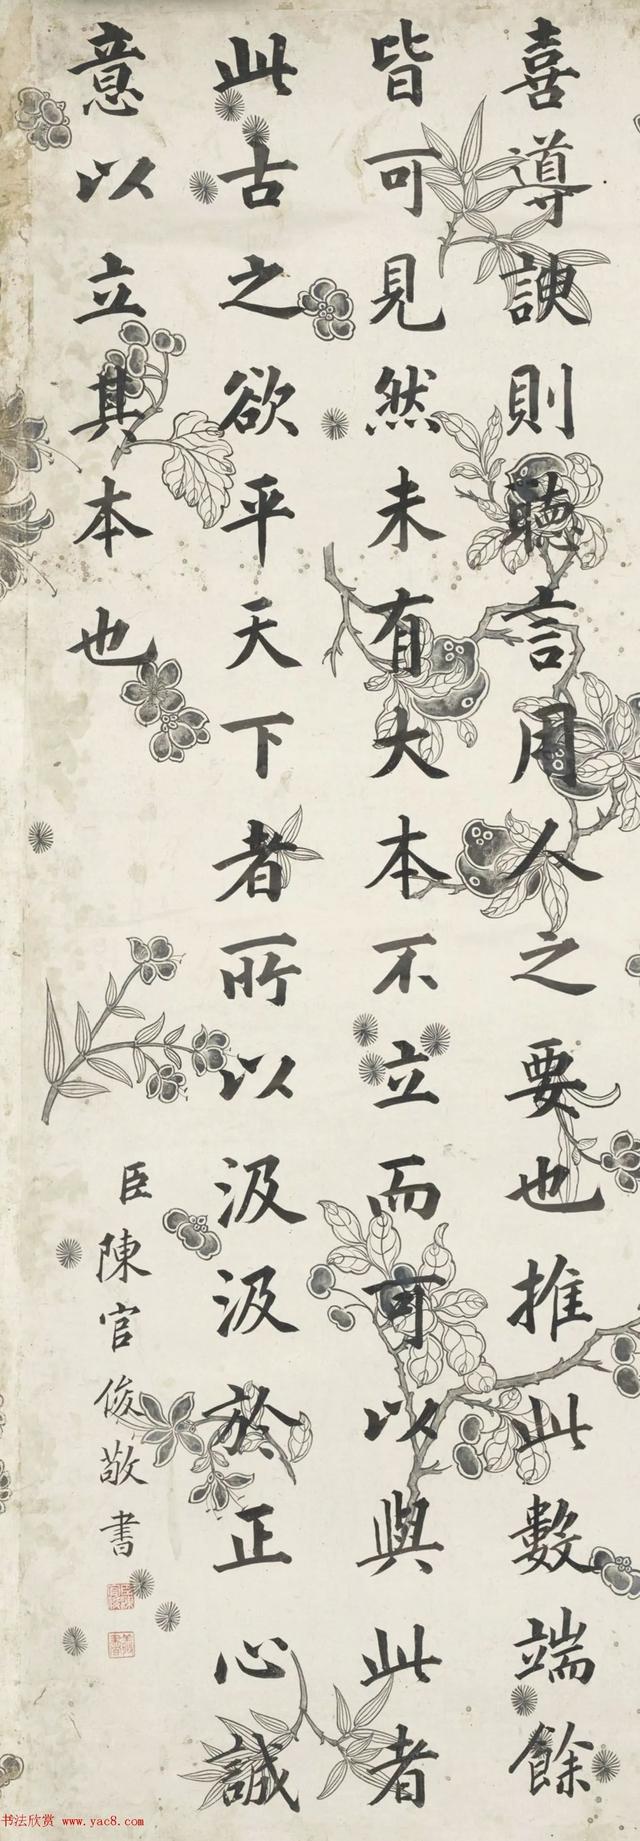 喜導諛則聽言用人之要也推此數端餘
皆可見然未有大本不立而可以與此者
此古之欲平天下者所以汲汲於正心誠
意以立其本也
臣陳官俊敬書
书法欣赏 www.yac8.com